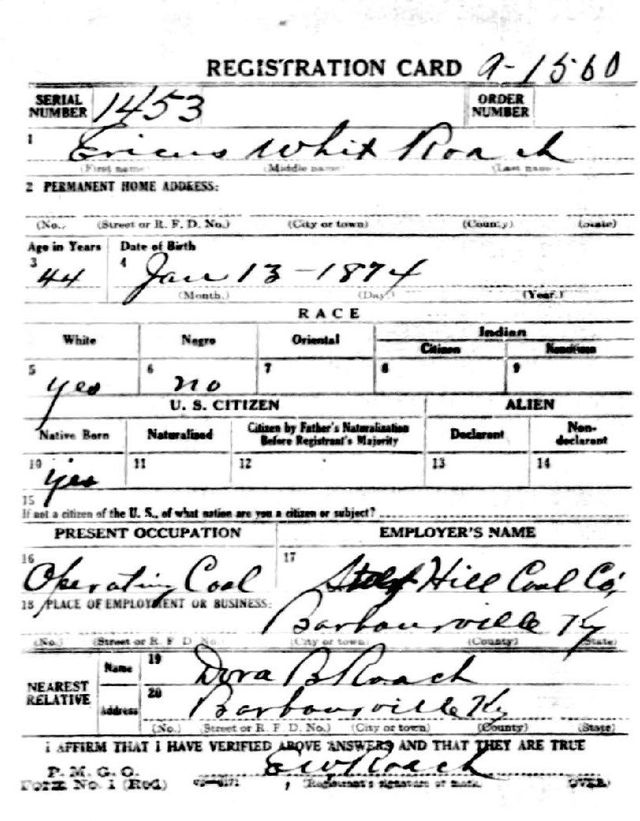 REGISTRATION CARD 9-1560
SERIAL NUMBER 1453 ORDER NUMBER
1 Ericus Whit Roach
(First name) (Middle name) (Last name)
2 PERMANENT HOME ADDRESS:
(No.) (Street or R. F. D. No.) (City or town) (County) (State)
Age in Years Date of Birth
3 44 4 Jan 13-1874
(Month.) (Day.) (Year.)
RACE
White Negro Oriental Indian
Citizen Noncitizen
5 yes 6 no 7 8 9
U. S. CITIZEN ALIEN
Native Born Naturalized Citizen by Father's Naturalization Before Registrant's Majority Declarant Non-declarant
10 yes 11 12 13 14
15
If not a citizen of the U. S., of what nation are you a citizen or subject?
PRESENT OCCUPATION EMPLOYER'S NAME
16 Operating Coal 17 Hill Coal Co,
18 PLACE OF EMPLOYMENT OR BUSINESS:
Barbourville Ky
(No.) (Street or R. F. D. No.) (City or town) (County) (State)
NEAREST RELATIVE Name 19 Dora B Roach
Address 20 Barbourville Ky
(No.) (Street or R. F. D. No.) (City or town) (County) (State)
I AFFIRM THAT I HAVE VERIFIED ABOVE ANSWERS AND THAT THEY ARE TRUE
P. M. G. O.
Form No. 1 (Red) E W Roach
(Registrant's signature or mark) (OVER)